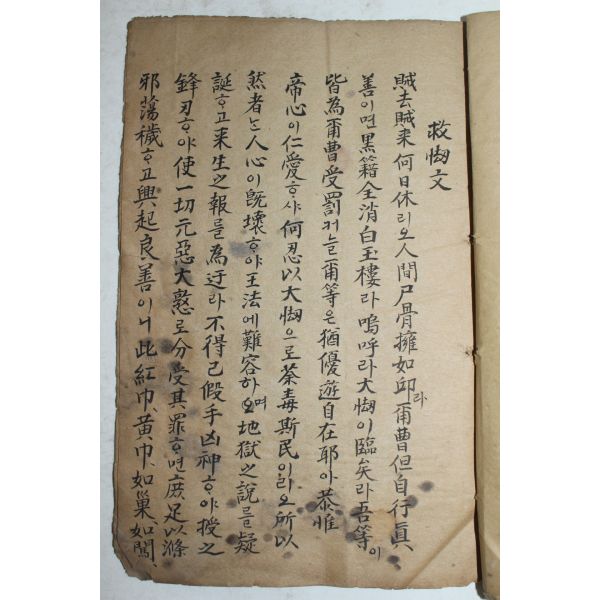 救惱文
賊去賊来何日休리오人間尸骨擁如邱라爾曹但自行眞
善이면黑籍全消白玉樓라嗚呼라大惱이臨矣라吾等이
皆為爾曹受罰커늘爾等은猶優遊自在耶아恭惟
帝心이仁愛ᄒᆞ샤何忍以大惱으로荼毒斯民이리오所以
然者ᄂᆞᆫ人心이旣壞ᄒᆞ야王法에難容하며地獄之說를疑
誕ᄒᆞ고来生之報를為迂라不得已假手凶神ᄒᆞ야授之
鋒刃ᄒᆞ야使一切元惡大憝로分受其罪ᄒᆞ면庶足以滌
邪蕩穢ᄒᆞ고興起良善이니此紅巾、黃巾、如巢如闖、